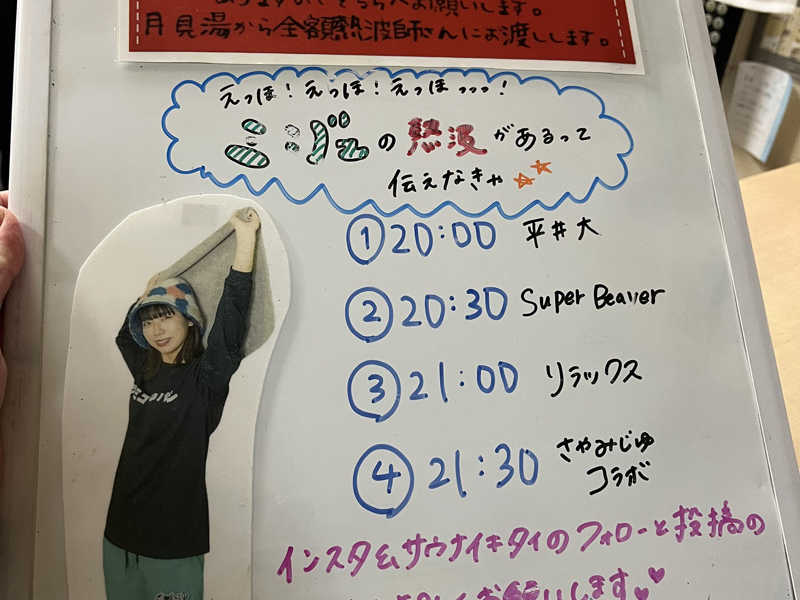 お願いします。
月見湯から全額熱波師さんにお渡しします。
えっほ！えっほ！えっほ...！
ミニジュの熱波があるって
伝えなきゃ
① 20:00 平井大
② 20:30 Super Beaver
③ 21:00 リラックス
④ 21:30 さやみじゅ
コラボ
インスタ&サウナイキタイのフォローと投稿の
お願いします